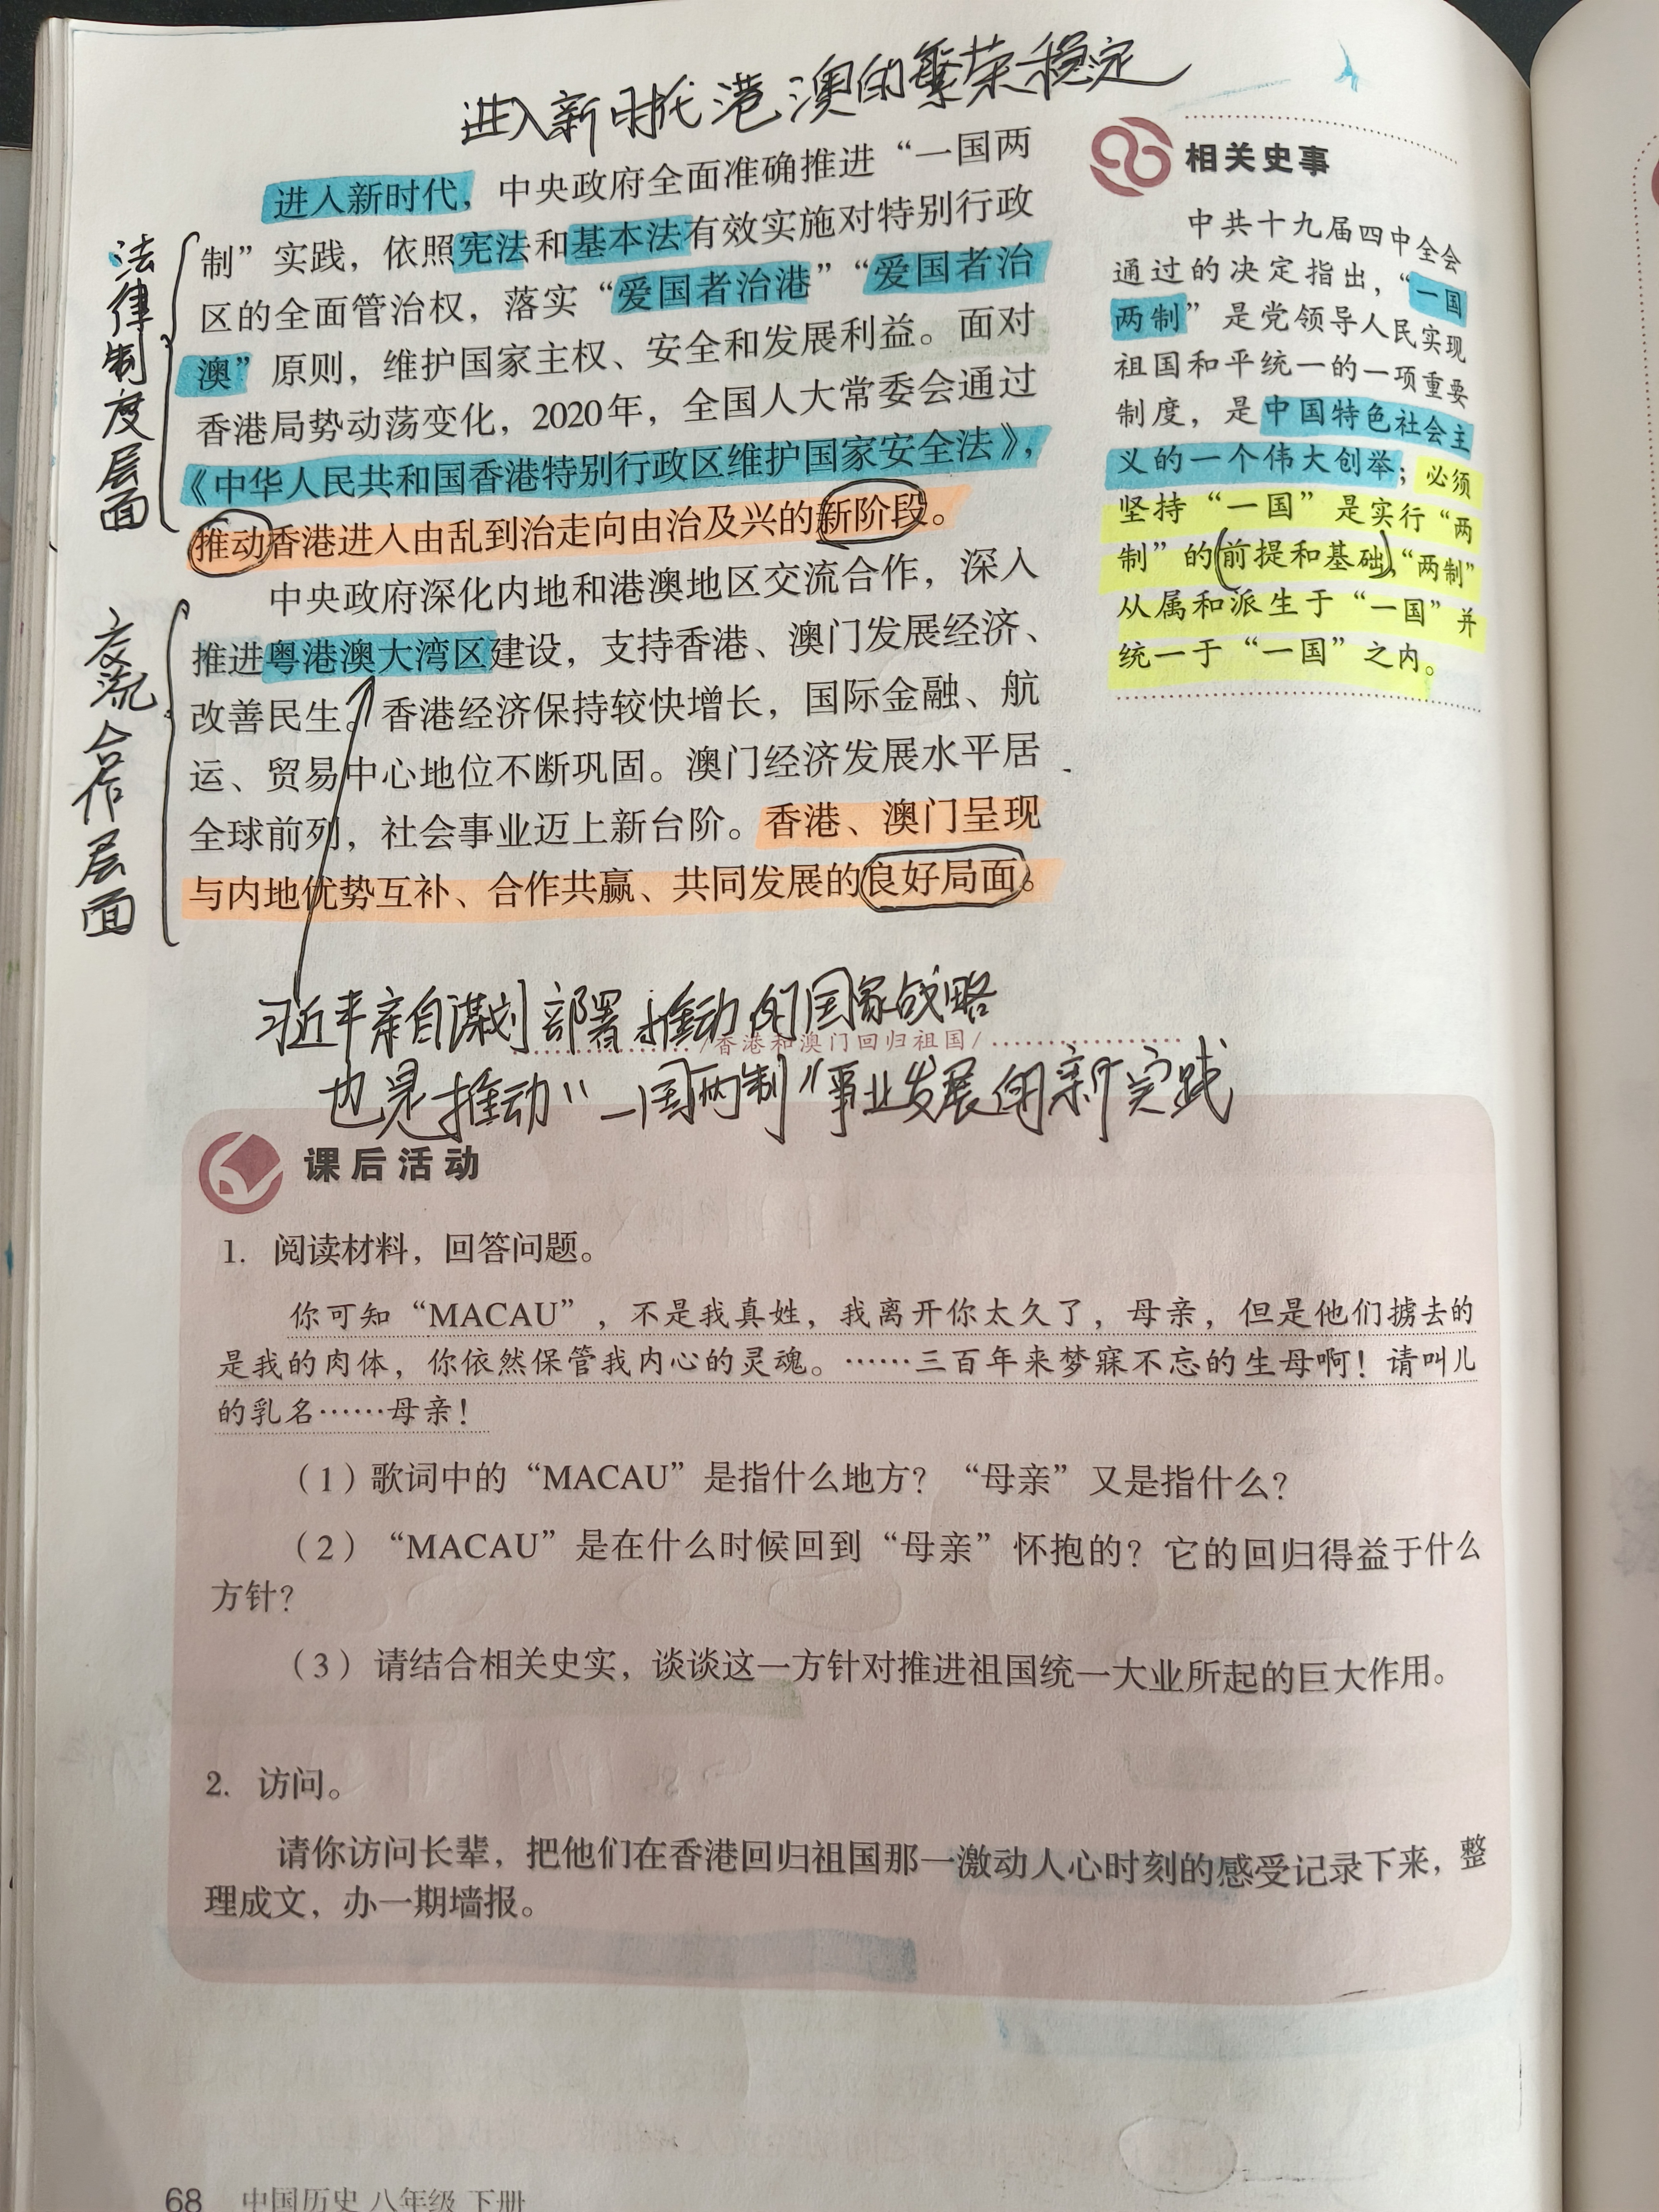 进入新时代港澳的繁荣稳定
进入新时代，中央政府全面准确推进“一国两
制”实践，依照宪法和基本法有效实施对特别行政
区的全面管治权，落实“爱国者治港”“爱国者治
澳”原则，维护国家主权、安全和发展利益。面对
香港局势动荡变化，2020年，全国人大常委会通过
《中华人民共和国香港特别行政区维护国家安全法》，
推动香港进入由乱到治走向由治及兴的新阶段。
法律制度层面
中央政府深化内地和港澳地区交流合作，深入
推进粤港澳大湾区建设，支持香港、澳门发展经济、
改善民生。香港经济保持较快增长，国际金融、航
运、贸易中心地位不断巩固。澳门经济发展水平居
全球前列，社会事业迈上新台阶。香港、澳门呈现
与内地优势互补、合作共赢、共同发展的良好局面。
交流合作层面
相关史事
中共十九届四中全会
通过的决定指出，“一国
两制”是党领导人民实现
祖国和平统一的一项重要
制度，是中国特色社会主
义的一个伟大创举；必须
坚持“一国”是实行“两
制”的前提和基础，“两制”
从属和派生于“一国”并
统一于“一国”之内。
习近平亲自谋划部署推动的国家战略
/香港和澳门回归祖国/
也是推动“一国两制”事业发展的新实践
课后活动
1. 阅读材料，回答问题。
你可知“MACAU”，不是我真姓，我离开你太久了，母亲，但是他们掳去的
是我的肉体，你依然保管我内心的灵魂。……三百年来梦寐不忘的生母啊！请叫儿
的乳名……母亲！
（1）歌词中的“MACAU”是指什么地方？“母亲”又是指什么？
（2）“MACAU”是在什么时候回到“母亲”怀抱的？它的回归得益于什么
方针？
（3）请结合相关史实，谈谈这一方针对推进祖国统一大业所起的巨大作用。
2. 访问。
请你访问长辈，把他们在香港回归祖国那一激动人心时刻的感受记录下来，整
理成文，办一期墙报。
68 中国历史 八年级 下册